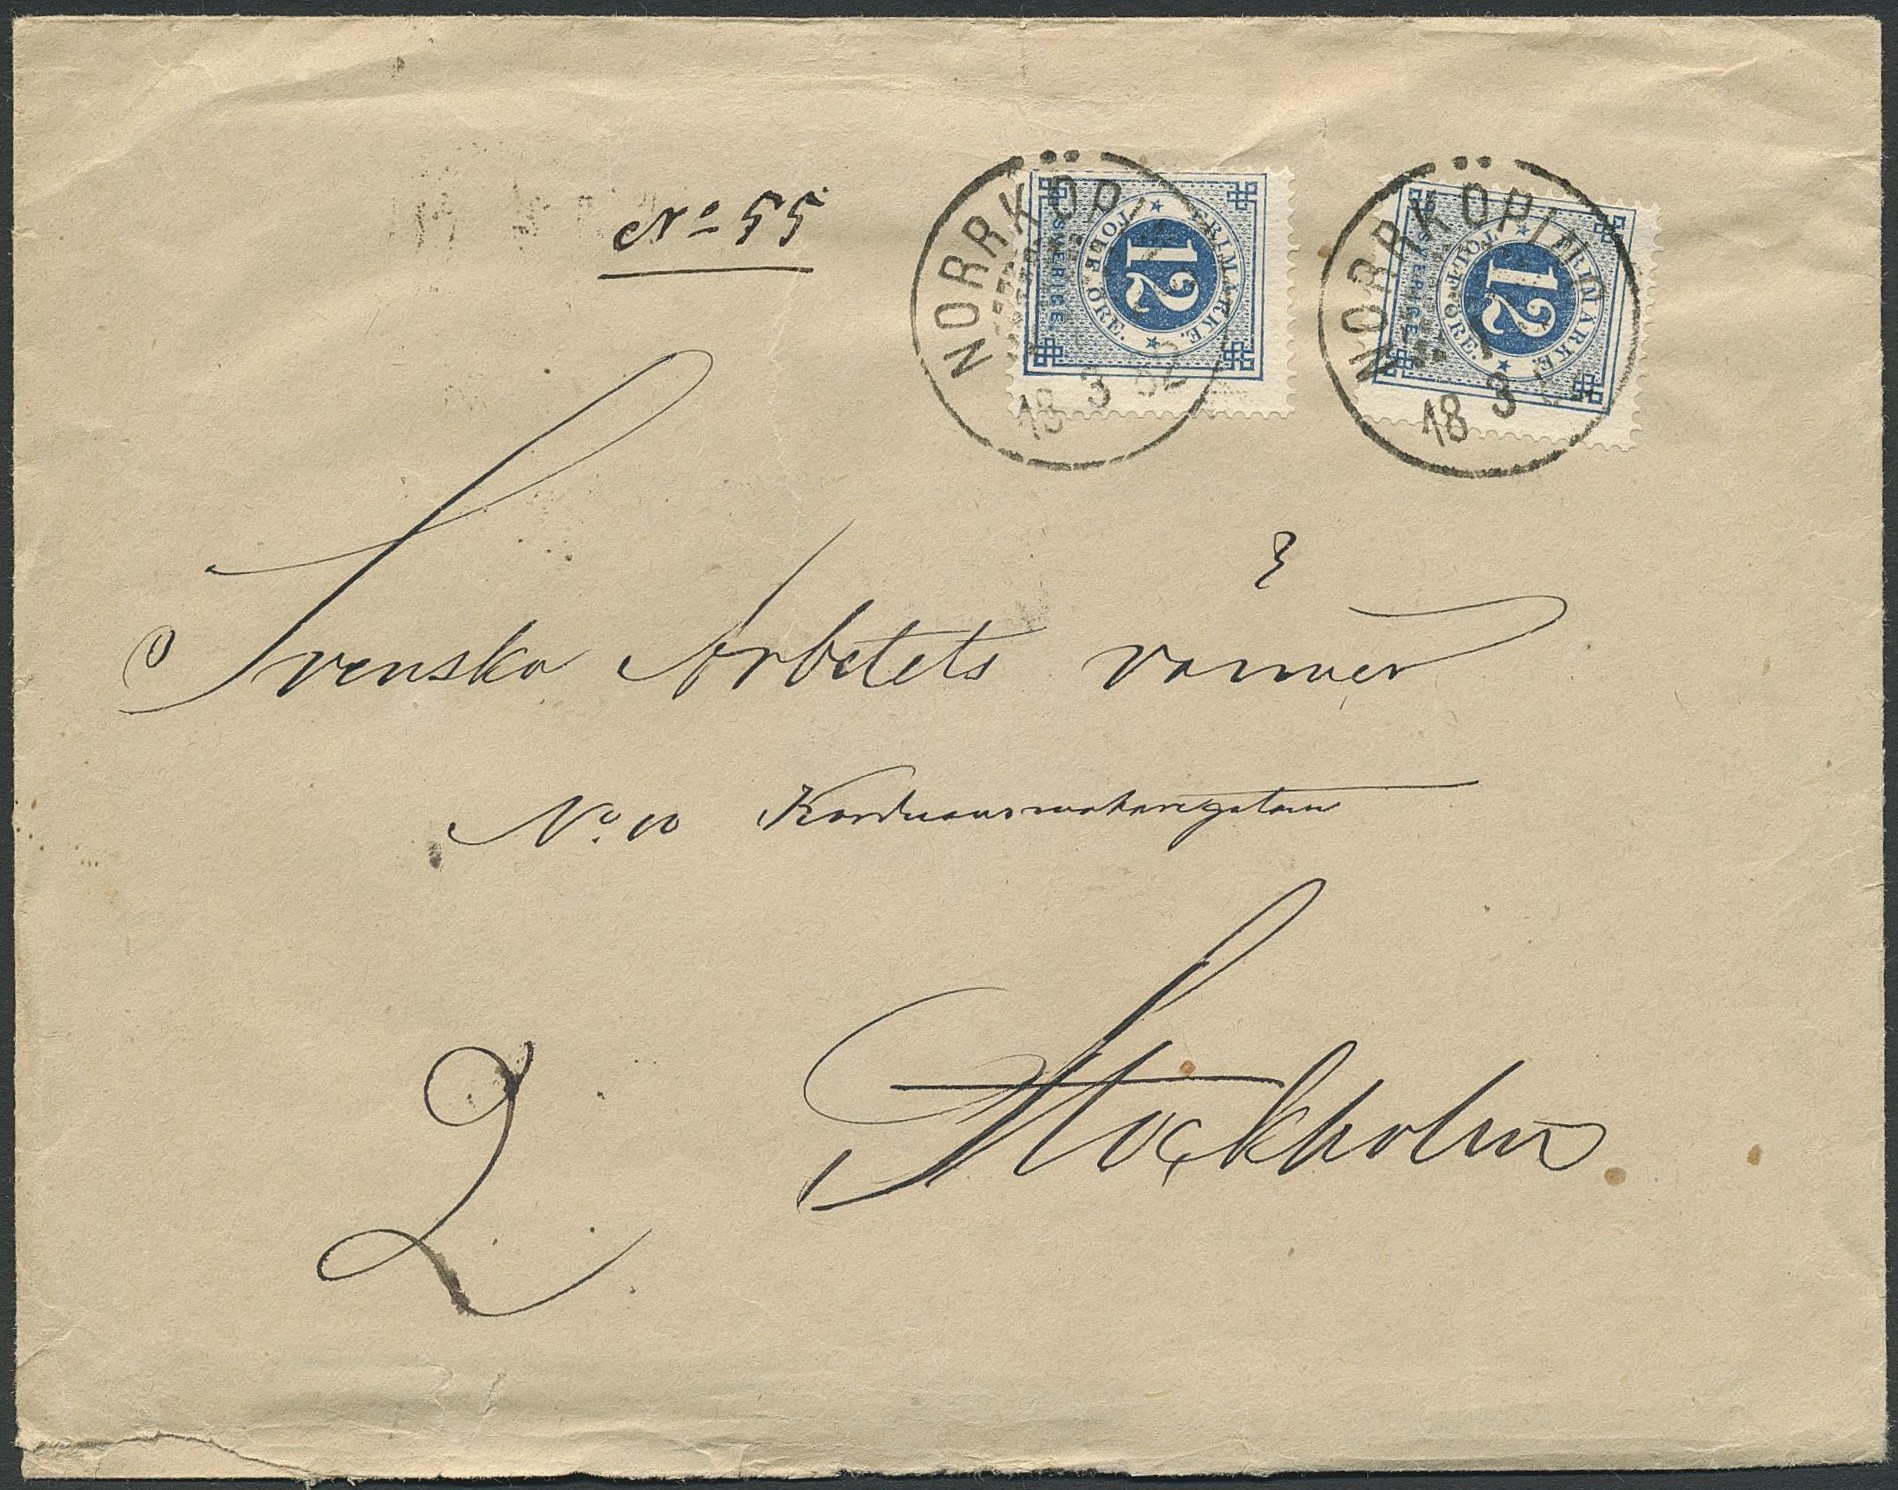 No 55
NORRKÖPING
18 3 82
SVERIGE.
FRIMÄRKE.
TOLF ÖRE.
12
NORRKÖPING
18 3
SVERIGE.
FRIMÄRKE.
TOLF ÖRE.
12
Svenska Arbetets vänner
No. 10 Korduansmakaregatan
2 Stockholm